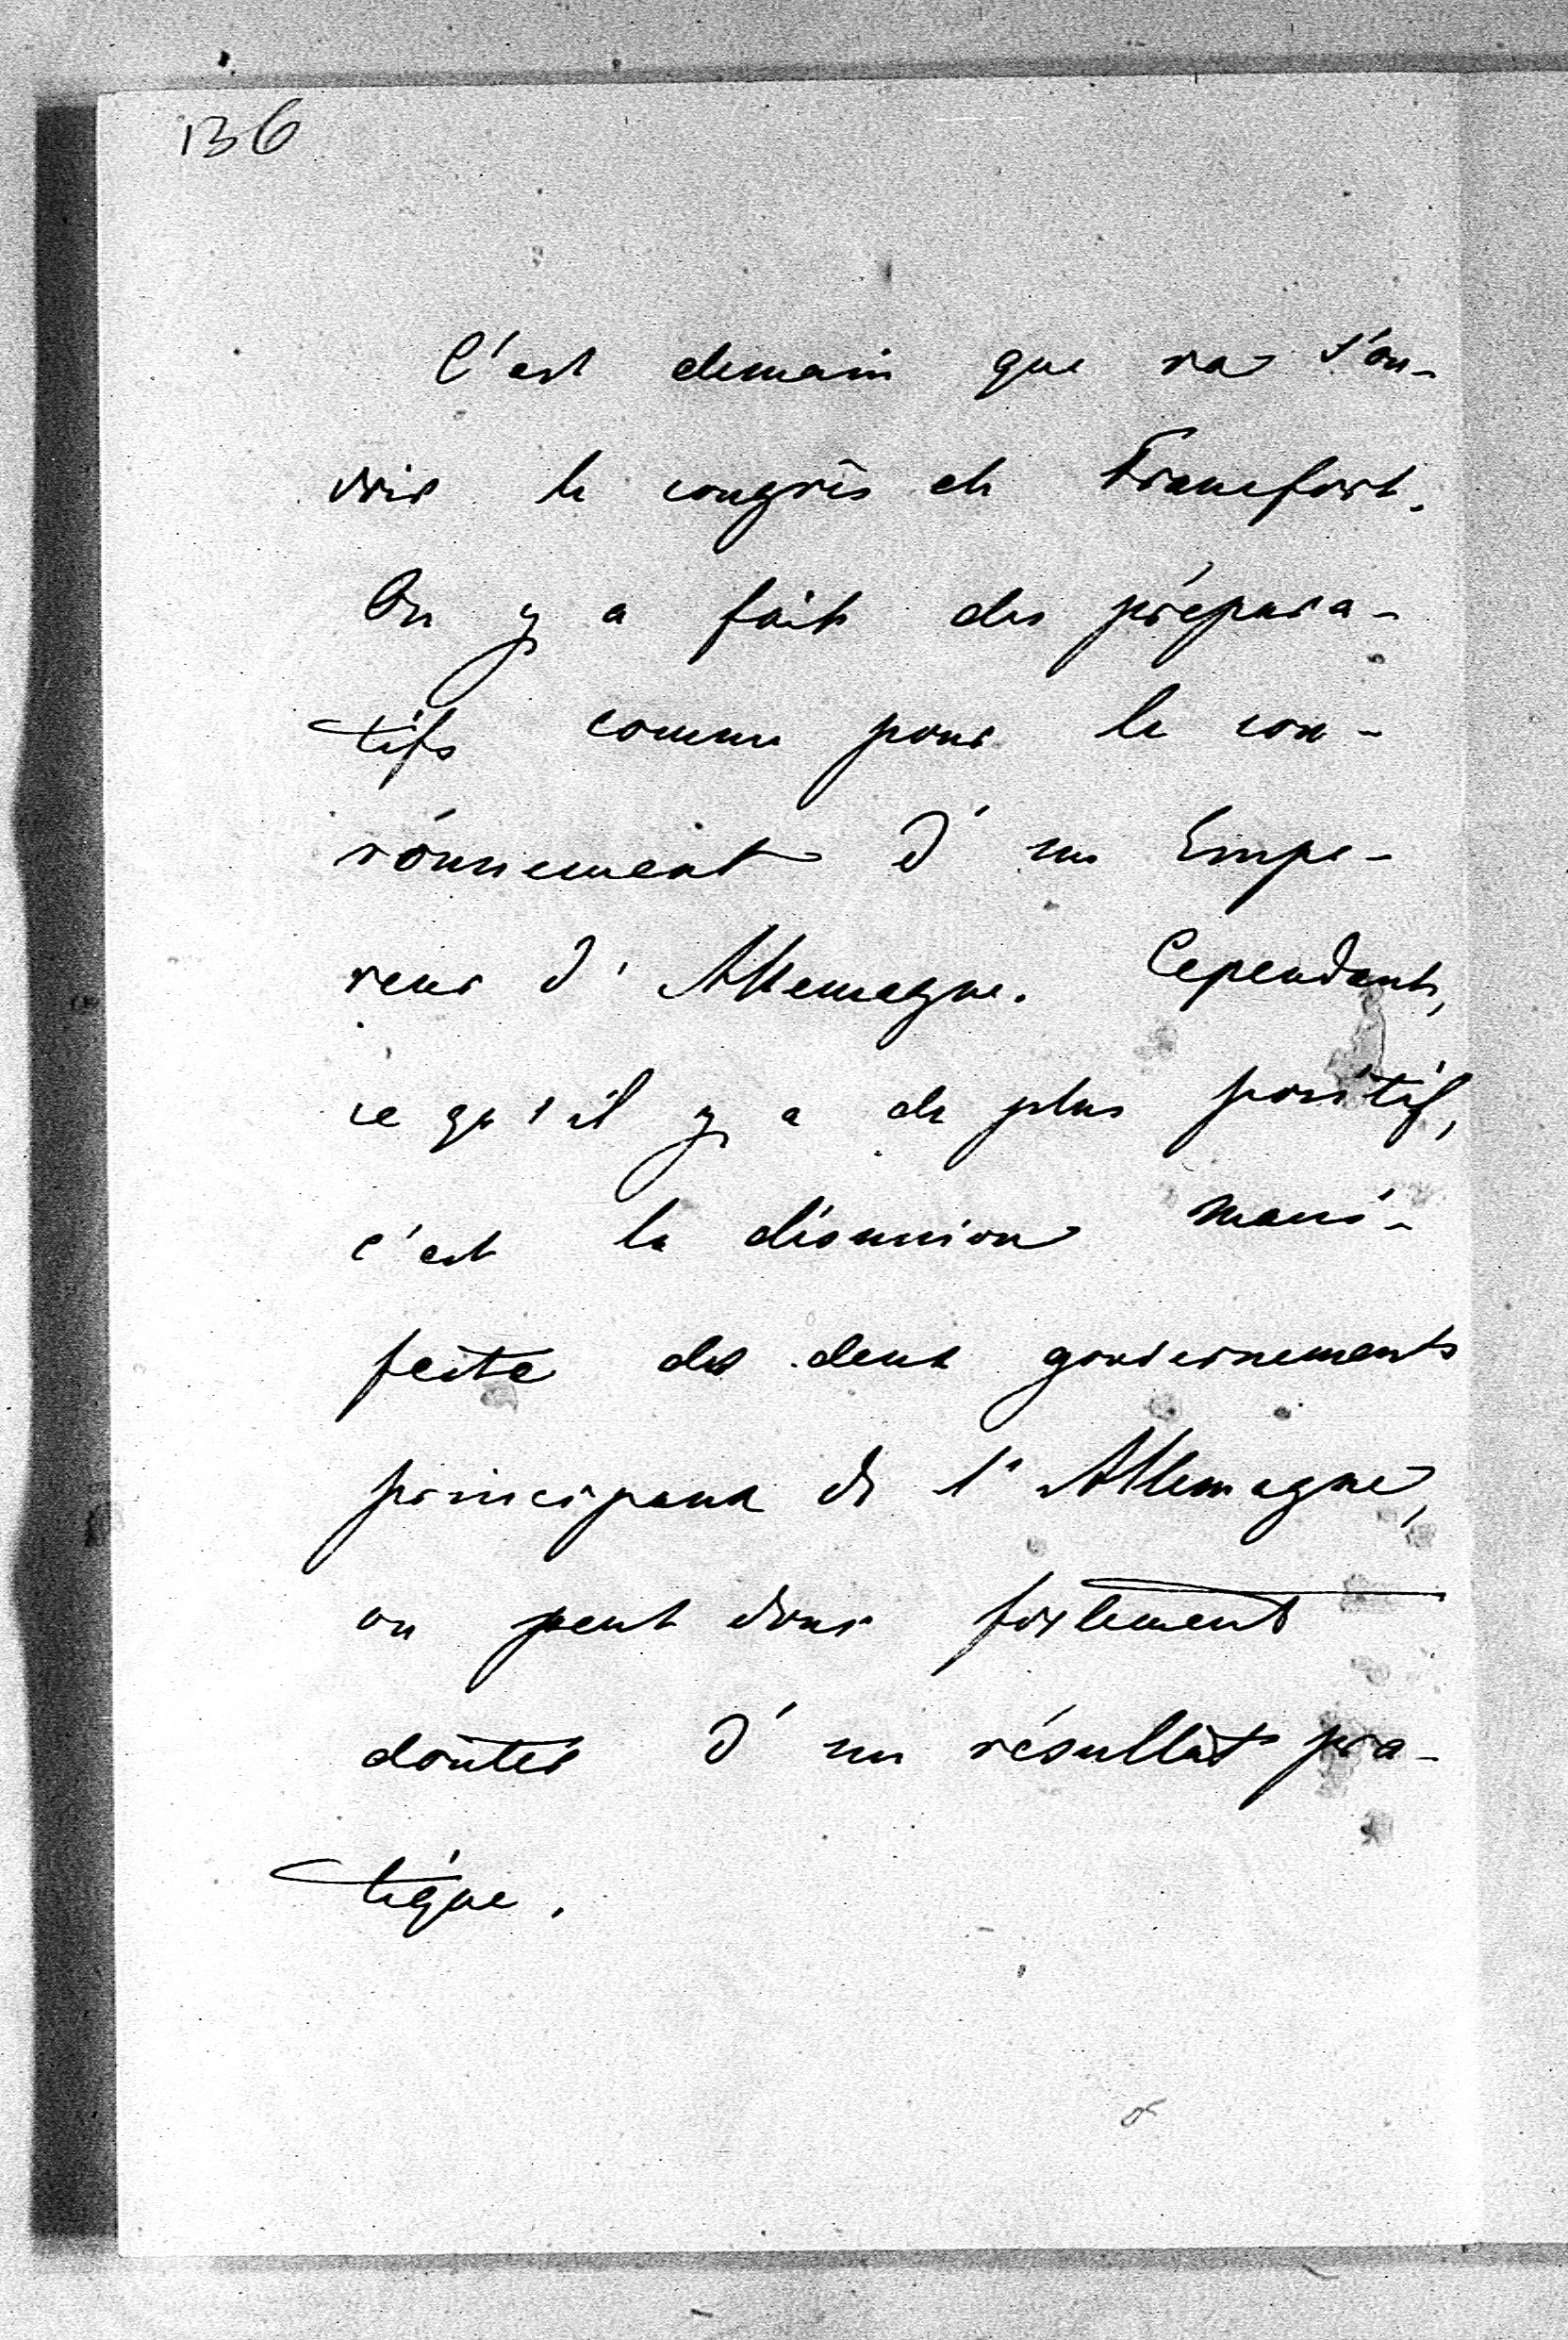 136
C'est demain que va s'ou-
vrir le congrès de Francfort.
On y a fait des prépara-
tifs comme pour le cou-
ronnement d'un Empe-
reur d'Allemagne. Cependant,
ce qu'il y a de plus positif,
c'est la désunion mani-
feste des deux gouvernements
principaux de l'Allemagne,
on peut donc fortement
douter d'un résultat pra-
tique.